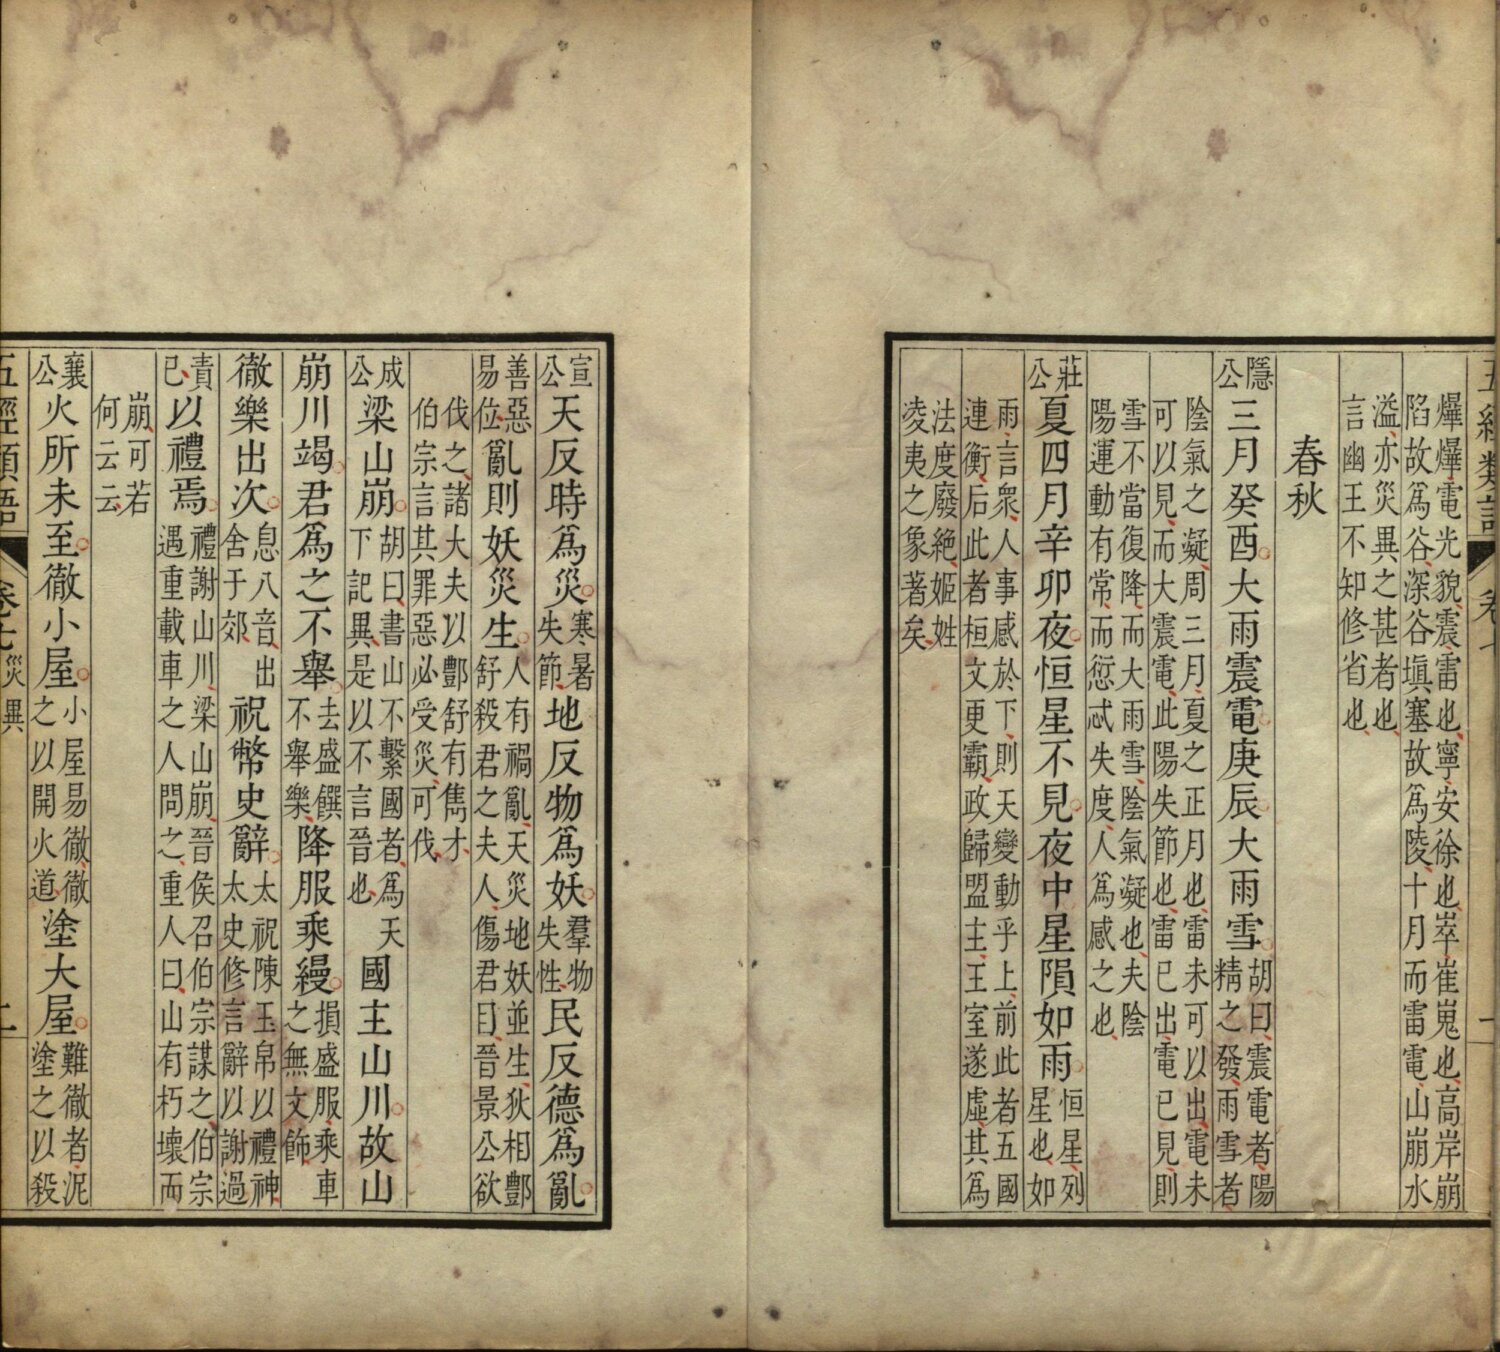 五經類語 卷七 一
爗爗電光貌震雷也寧安徐也崒崔嵬也高岸崩
陷故爲谷深谷塡塞故爲陵十月而雷電山崩水
溢亦災異之甚者也
言幽王不知修省也
春秋
隱公三月癸酉大雨震電庚辰大雨雪胡曰震電者陽精之發雨雪者
陰氣之凝周三月夏之正月也雷未可以出電未
可以見而大震電此陽失節也雷已出電已見則
雪不當復降而大雨雪陰氣凝也夫陰
陽運動有常而愆忒失度人爲感之也
莊公夏四月辛卯夜恒星不見夜中星隕如雨恒星列星也如
雨言衆人事感於下則天變動乎上前此者五國
連衡后此者桓文更霸政歸盟主王室遂虛其爲
法度廢絶姬姓
凌夷之象著矣
宣公天反時爲災寒暑失節地反物爲妖羣物失性民反德爲亂
善惡易位亂則妖災生人有禍亂天災地妖並生狄相酆舒殺君之夫人傷君目晉景公欲
伐之諸大夫以酆舒有雋才
伯宗言其罪惡必受災可伐
成公梁山崩胡曰書山不繫國者爲天下記異是以不言晉也國主山川故山
崩川竭君爲之不舉去盛饌不舉樂降服乘縵損盛服乘車之無文飾
徹樂出次息八音出舍于郊祝幣史辭太祝陳玉帛以禮神太史修言辭以謝過
責己以禮焉禮謝山川梁山崩晉侯召伯宗謀之伯宗遇重載車之人問之重人曰山有朽壞而
崩可若
何云云
襄公火所未至徹小屋小屋易徹徹之以開火道塗大屋難徹者泥塗之以殺
五經類語 卷七 災異 二